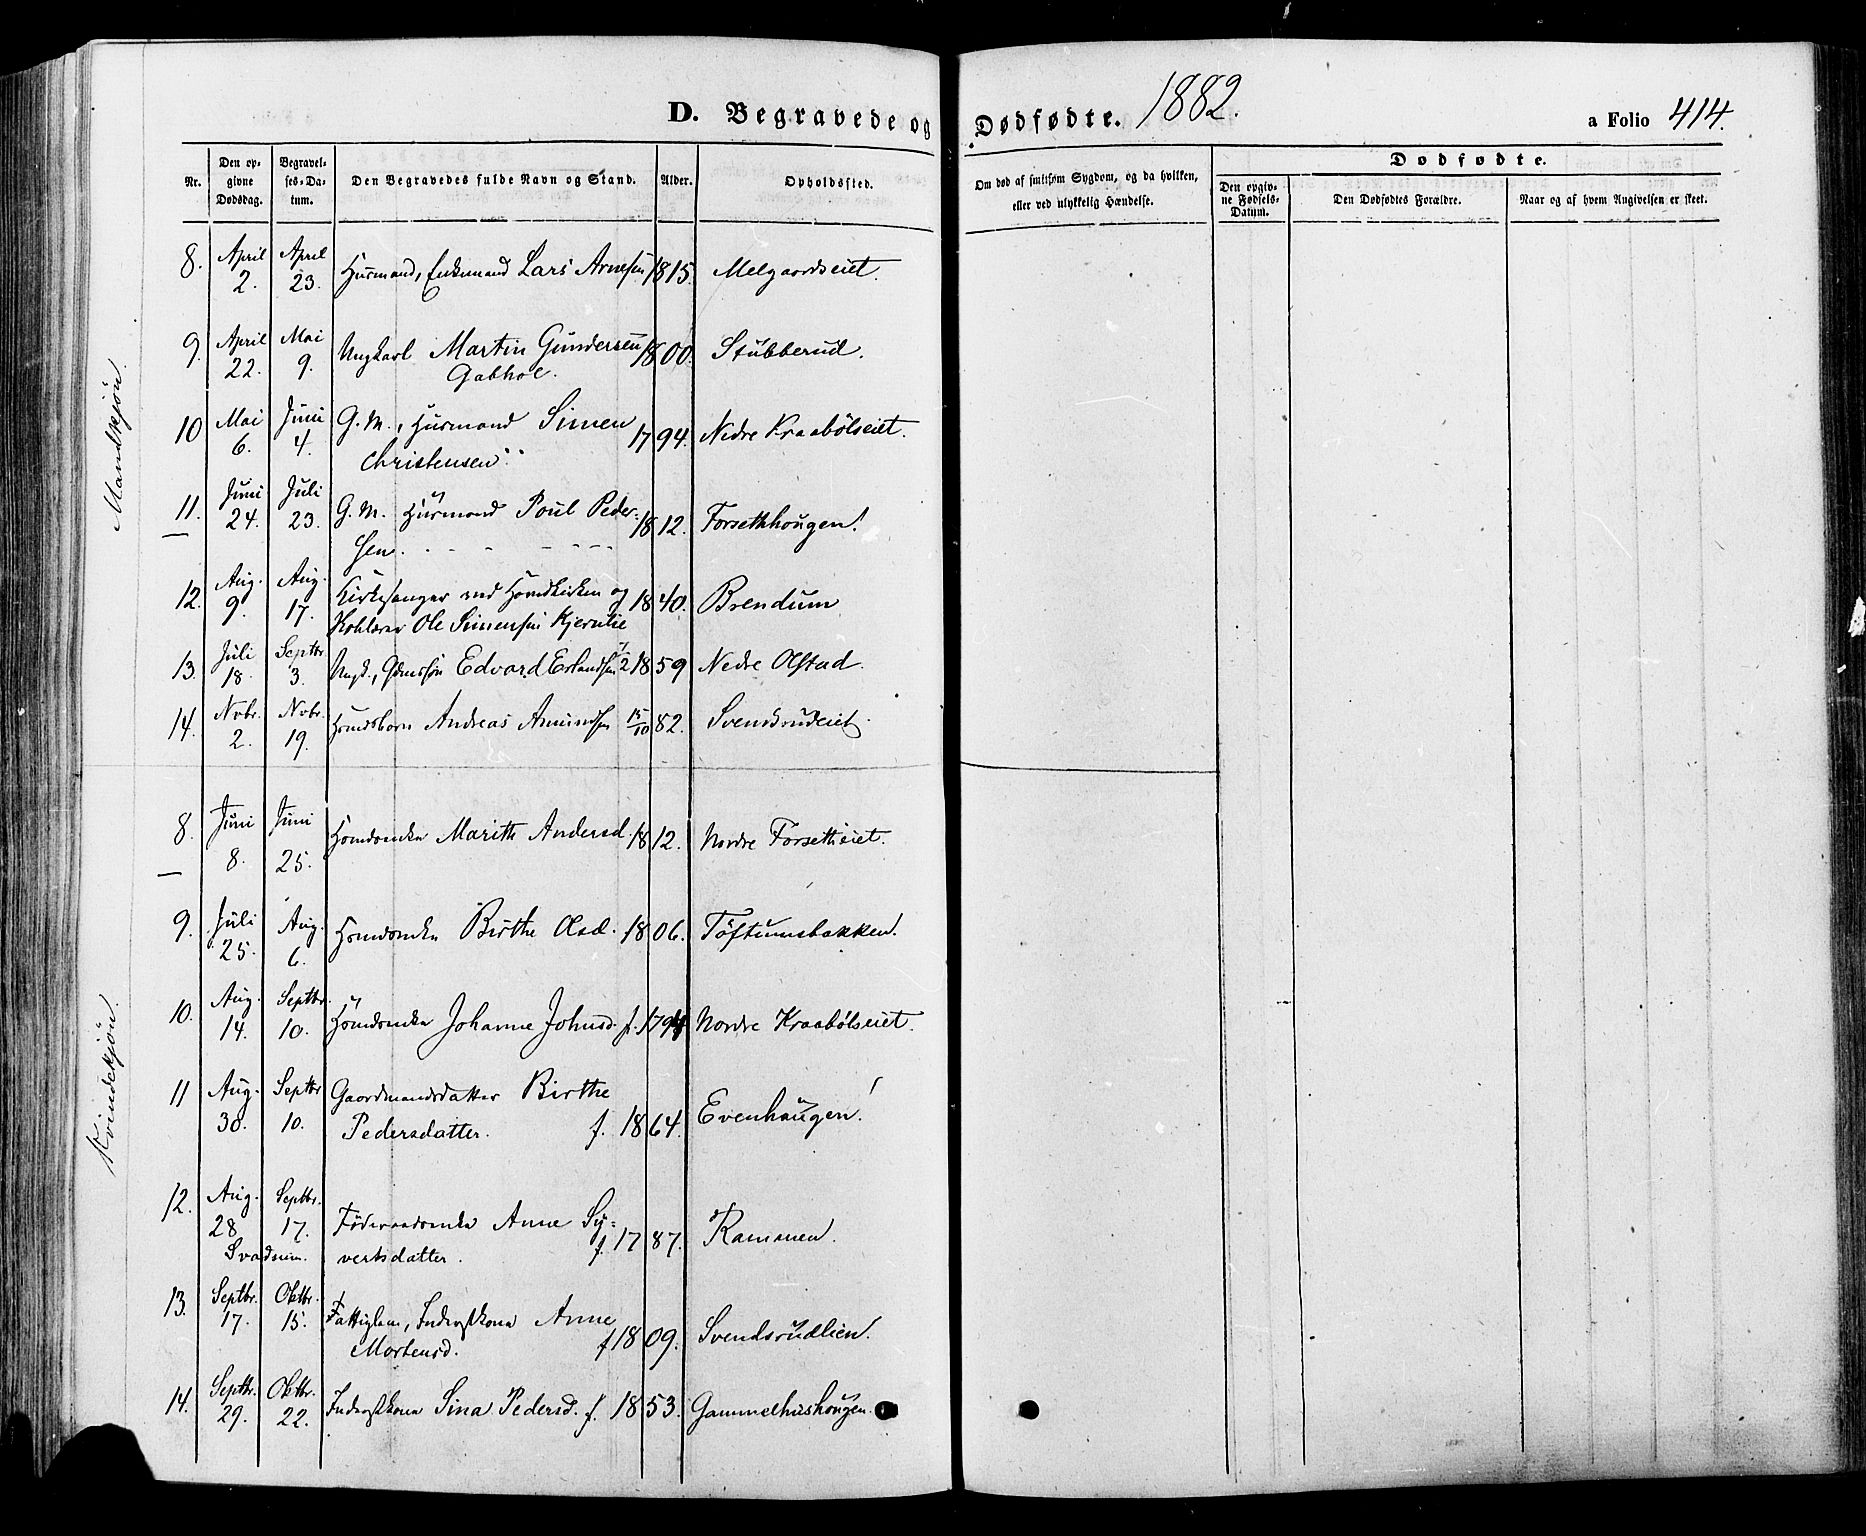 D. Begravede og Dødfødte. 1882. a Folio 414.
Nr. Den opgivne Dødsdag. Begravelses-Datum. Den Begravedes fulde Navn og Stand. Alder. Opholdssted. Om død af smitsom Sygdom, og da hvilken, eller ved ulykkelig Hændelse. Dødfødte.
Den opgivne Fødsels-Datum. Den Dødfødtes Forældre. Naar og af hvem Angivelsen er skeet.
Mandkjøn.
8. April 2. April 23. Husmand, Enkemand Lars Arnesen 1815. Melgaardseiet.
9. April 22. Mai 9. Ungkarl Martin Gundersen 1800. Stubberud.
Gabhoe.
10 Mai 6. Juni 4. G. M., Husmand Simen 1794. Nedre Kraabölseiet.
Christensen
11. Juni 24. Juli 23. G. M. Husmand Poul Peder- 1812. Forsethhougen.
sen.
12. Aug. 9. Aug. 17. Kirkesanger ved Hovedkirken og 1840. Brendum
Ole Simensen Kjernlie
13. Juli 18. Septbr. 3. Ungk., Edvard Erlandsen 1859 Nedre Olstad.
14. Novbr. 2. Novbr. 19. Andreas Amundsen 15/10 82. Svendsrudeiet.
Kvindekjön.
8. Juni 8. Juni 25. Marith Andersd. 1812. Nordre Forsettheiet.
9. Juli 25. Aug. 6. Birthe Olsd. 1806. Töftumsbakken.
10. Aug. 14. Septbr. 10. Johanne Johnsd. f. 1794 Nordre Kraabölseiet.
11 Aug. 30. Septbr 10. Gaardmandsdatter Birthe
Pedersdatter. f. 1864. Evenhaugen.
12. Aug. 28 Septbr. 17. Föderaadsenke Anne Sy- f. 1787. Rammen.
Svadsum. vertsdatter.
13. Septbr. 17. Oktbr. 15. Fattiglem, Inderstkone Anne
Mortensd. f 1809. Svendsrudlien.
14. Septbr. 29. Oktbr. 22. Inderstkone Sina Pedersd. f. 1853. Gammelhushougen.